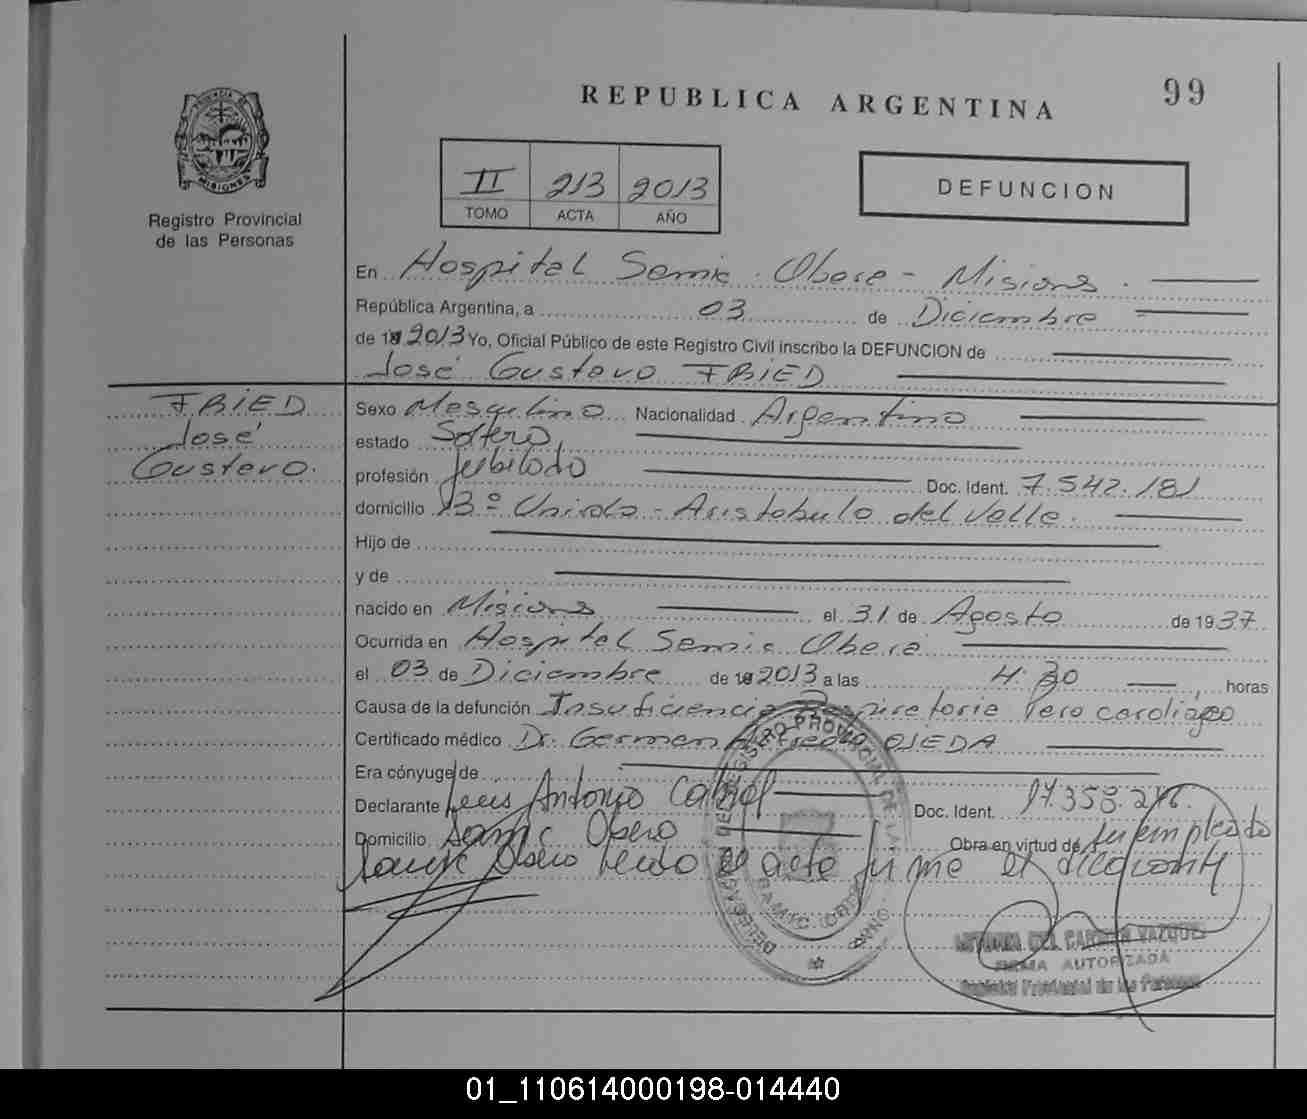 REPUBLICA ARGENTINA
99
PROVINCIA DE
MISIONES
Registro Provincial
de las Personas
II 213 2013
TOMO ACTA AÑO
DEFUNCION
En Hospital Samic . Obera - Misiones .
República Argentina, a 03 de Diciembre
de 19 2013 Yo, Oficial Público de este Registro Civil inscribo la DEFUNCION de
José Gustavo FRIED
FRIED
José
Gustavo.
Sexo Masculino Nacionalidad Argentino
estado Soltero
profesión Jubilado Doc. Ident. 7.542.181
domicilio Bº Unido - Aristobulo del Valle.
Hijo de
y de
nacido en Misiones el 31 de Agosto de 1937
Ocurrida en Hospital Samic Obera
el 03 de Diciembre de 19 2013 a las 4:30 horas
Causa de la defunción Insuficiencia Respiratoria Paro cardiaco
Certificado médico Dr. German Alfredo OJEDA
Era cónyuge de
Declarante Luis Antonio Doc. Ident. 17.358.216.
Domicilio Samic Obera Obra en virtud de su empleado
Samic Obera leido el acta firma el declarante
DELEGACION DEL REGISTRO PROVINCIAL DE LAS
SAMIC OBERA
DEL CARMEN VAZQUEZ
FIRMA AUTORIZADA
Registro Provincial de las Personas
01_110614000198-014440